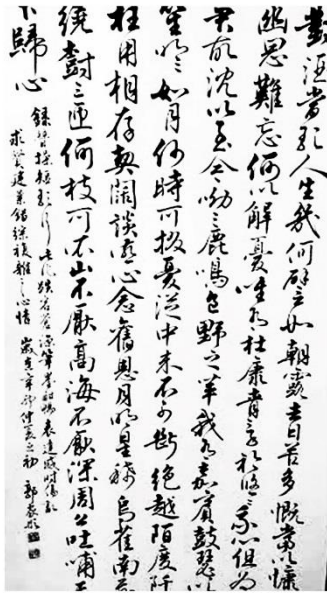 對酒當歌人生幾何譬如朝露去日苦多慨當以慷
幽思難忘何以解憂唯有杜康青々子衿悠々我心但為
君故沈吟至今呦々鹿鳴食野之苹我有嘉賓鼓瑟吹
笙明々如月何時可掇憂從中來不可斷絕越陌度阡
枉用相存契闊談讌心念舊恩月明星稀烏雀南飛
繞樹三匝何枝可依山不厭高海不厭深周公吐哺天
下歸心
錄曹操短歌行此詩 表達感時傷亂
求賢建業錯綜複雜之心情 歲在辛卯仲夏之初 郭